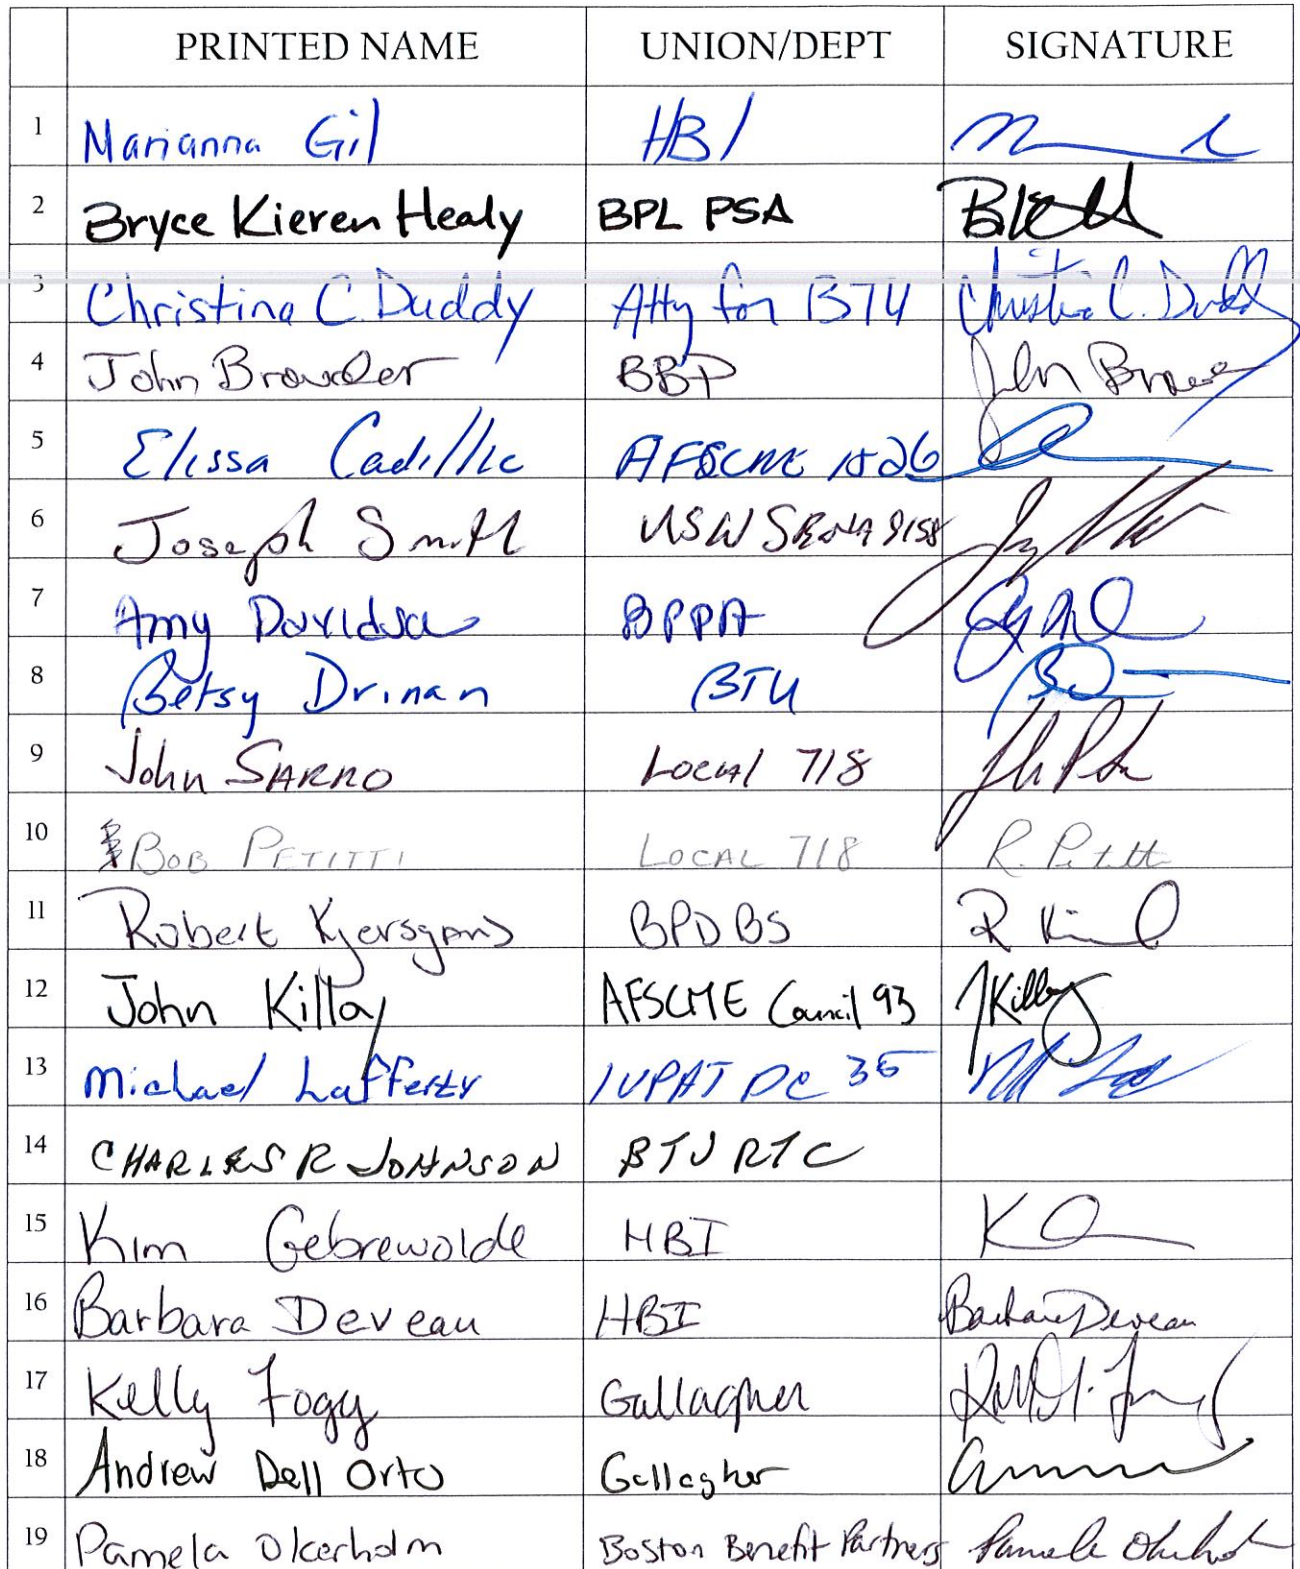 PRINTED NAME UNION/DEPT SIGNATURE
1 Marianna Gil HBI
2 Bryce Kieren Healy BPL PSA
3 Christina C. Duddy Atty for BTU Christina C. Duddy
4 John Browder BBP John
5 Elissa Cadillic AFSCME 1526
6 Joseph Smith USW 9158
7 Amy Davidson BPPA
8 Betsy Drinan BTU BD
9 John SARRO LOCAL 718
10 BOB PETITTI LOCAL 718 R. Petitti
11 Robert BPDBS R
12 John Killoy AFSCME Council 93 JKilloy
13 Michael Lafferty IUPAT DC 35
14 CHARLES R JOHNSON BTU RTC
15 Kim Gebrewolde HBI K
16 Barbara Deveau HBI Barbara Deveau
17 Kelly Fogy Gallagher
18 Andrew Dell Orto Gallagher
19 Pamela Okerholm Boston Benefit Partners Pamela Okerholm